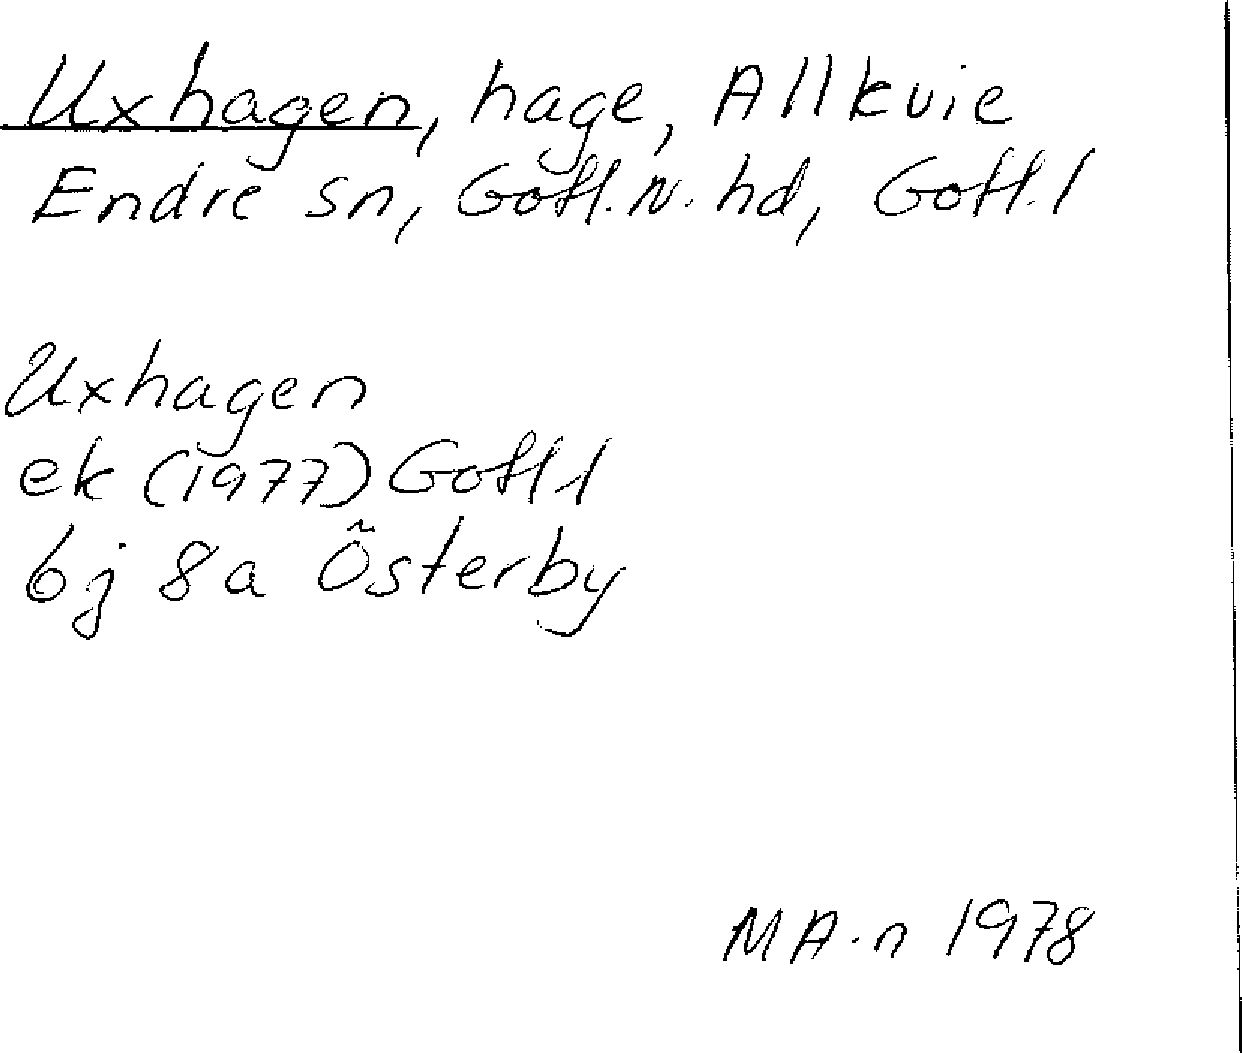 Uxhagen, hage, Allkvie
Endre sn, Gotl. N. hd, Gotl. l
Uxhagen
ek (1977) Gotl l
6j 8a Österby
MA-n 1978